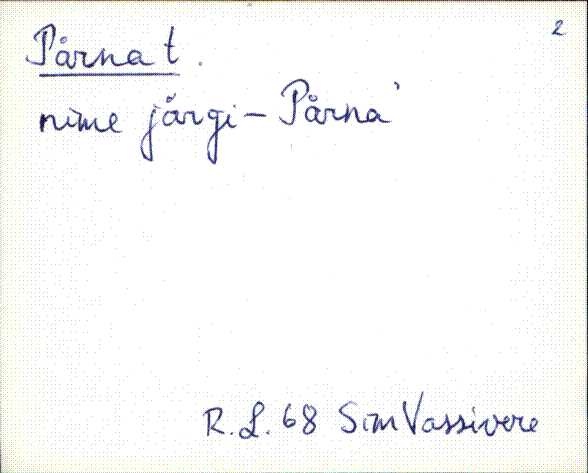 2
Pärna t.
nime järgi – Pärna'
R. L. 68 Sim Vassivere